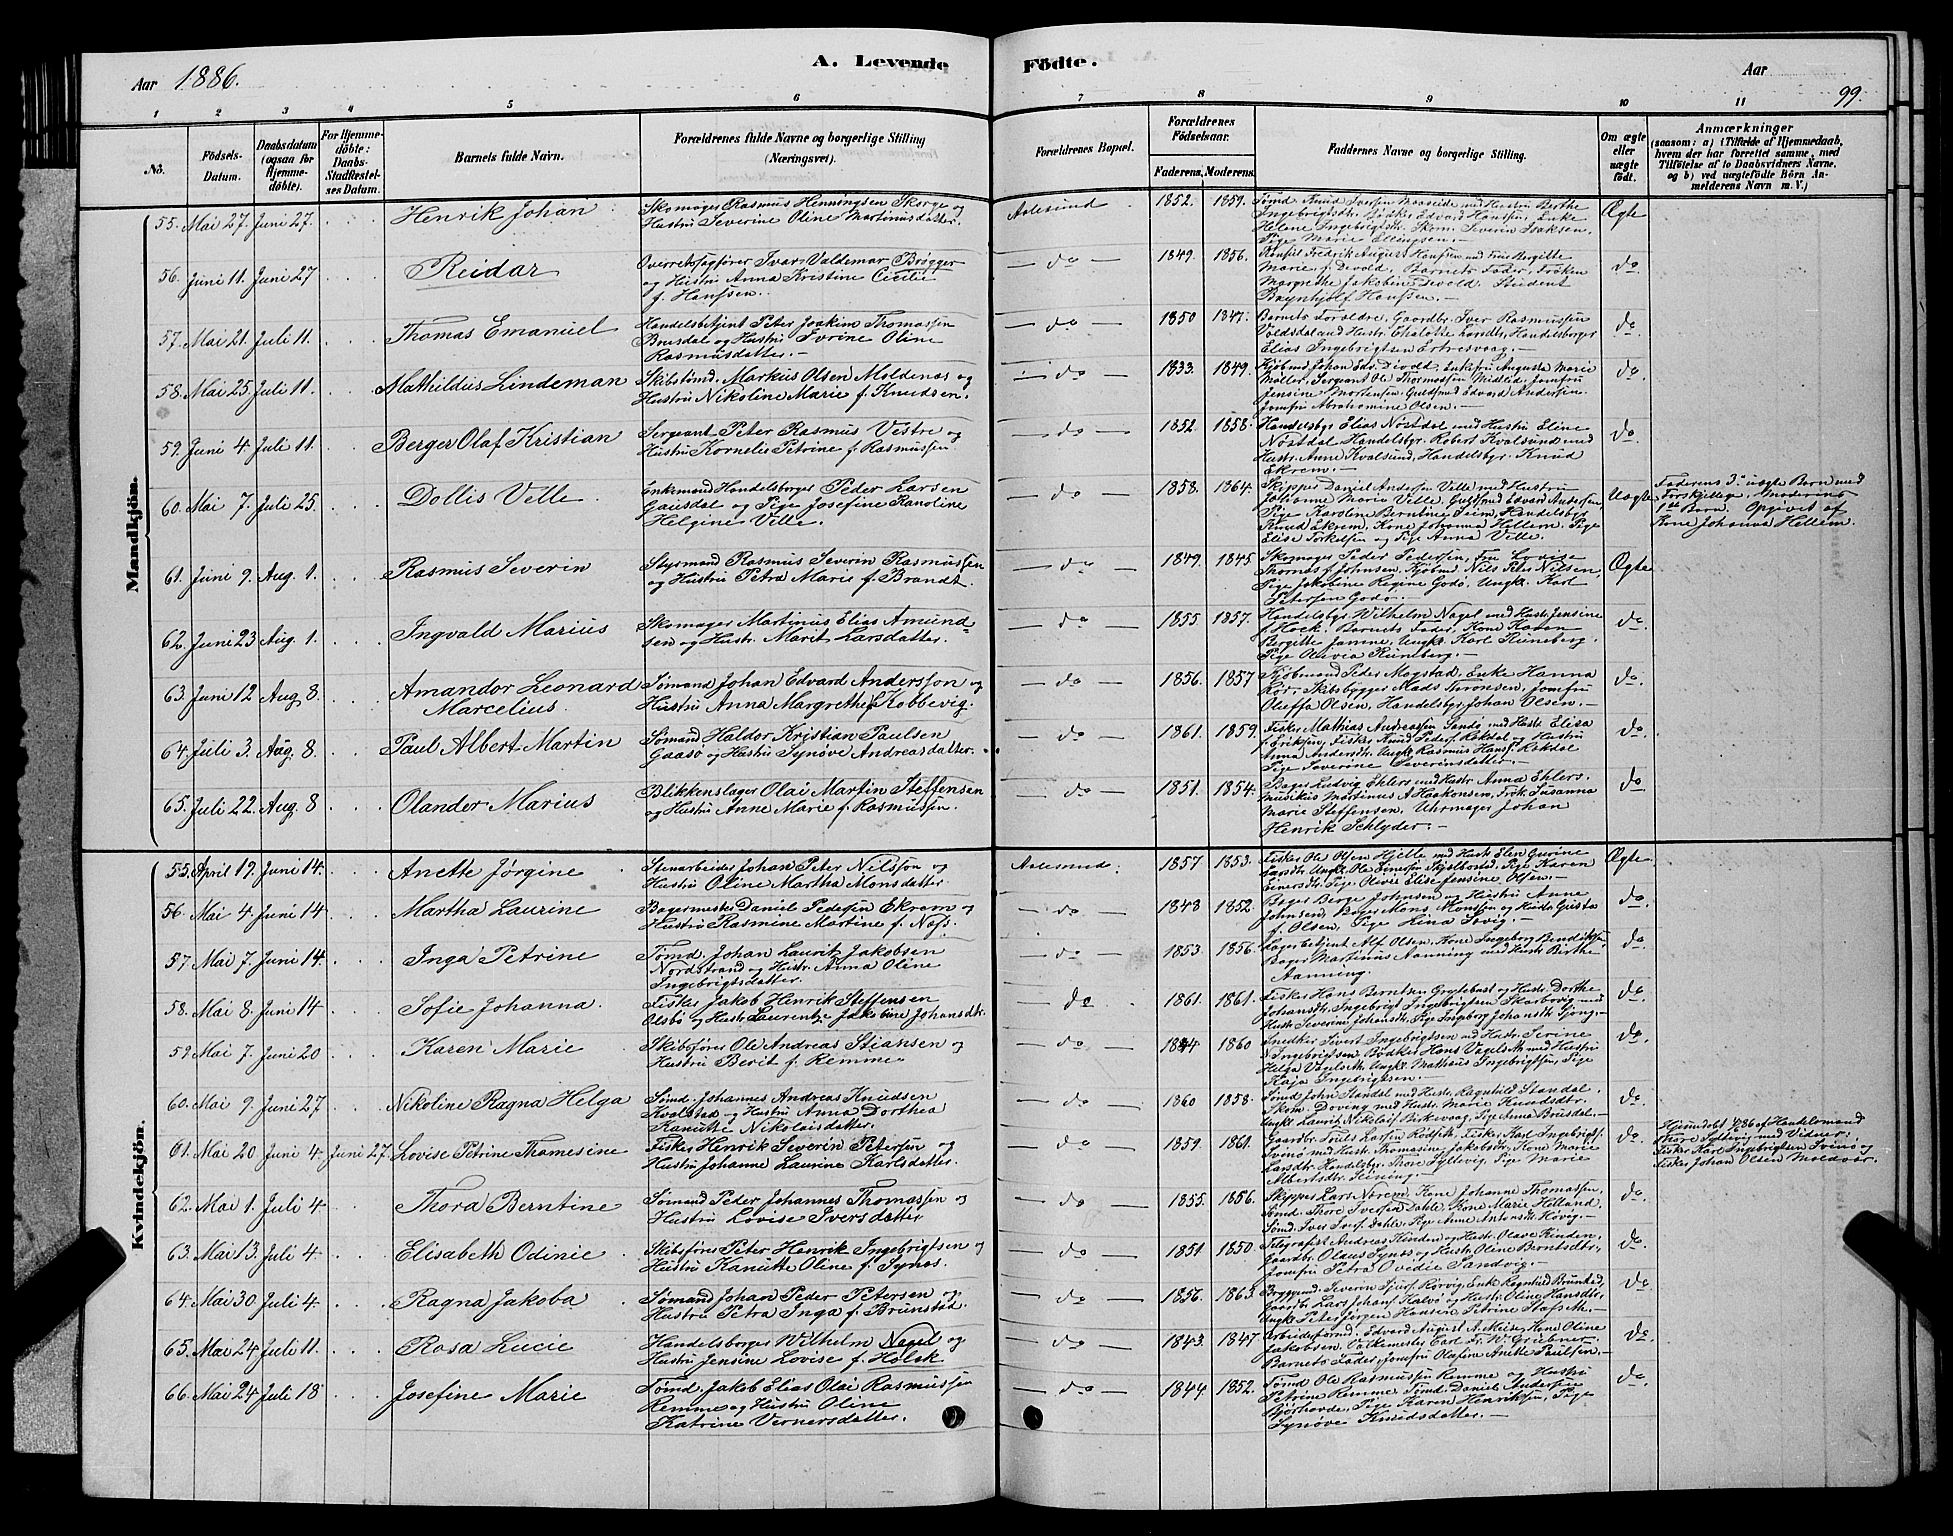 Aar 1886.
A. Levende
Födte.
Aar
99.
1 2 3 4 5 6 7 8 9 10 11
No.
Fødsels-Datum.
Daabsdatum (ogsaa for Hjemme-döbte).
For Hjemme-döbte: Daabs-Stadfæstel-ses Datum.
Barnets fulde Navn.
Forældrenes fulde Navne og borgerlige Stilling (Næringsvei).
Forældrenes Bopæl.
Forældrenes Födselsaar.
Faderens. Moderens.
Faddernes Navne og borgerlige Stilling.
Om ægte eller uægte födt.
Anmærkninger
(saasom: a) i Tilfælde af Hjemmedaab, hvem der har forrettet samme, med Tilföielse af to Daabsvidners Navne, og b) ved uægtefödte Börn An-melderens Navn m. V.)
Mandkjön.
55. Mai 27. Juni 27. Henrik Johan
Skomager Rasmus Henningsen Skorge og
Hustru Severine Oline Martinusdatter.
Aalesund 1852. 1859.
Ingebrigtsdtr. Bödker Edvard Hansen, Enke
Helene Ingebrigtsdtr. Skom. Severin Isaksen,
Pige Marie Ellingsen.
Ægte
56. Juni 11. Juni 27 Reidar
Overretssagförer Ivar Valdemar Brøgger
og Hustru Anna Kristine Cecilie
f. Hanssen.
do 1849. 1856.
Konsul Fredrik August Hanssen med Frue Bergitte
Marie f. Devold, Barnets Fader, Fröken
Margrethe Jakobine Devold, Student
Brynhjolf Hanssen.
do
57. Mai 21. Juli 11. Thomas Emanuel
Handelsbetjent Peter Joakim Thomassen
Brusdal og Hustru Ivrine Oline
Rasmusdatter.
do 1850 1847.
Barnets Forældre, Gaardbr. Iver Rasmussen
Valdsdal med Hustr. Charlotte, Handelsborger
Elias Ingebrigtsen
do
58. Mai 25. Juli 11. Mathildus Lindeman
Skibstömd. Markus Olsen Moldenæs og
Hustru Nikoline Marie f. Knudsen.
do 1833. 1849.
Kjöbmd Johan Edv. Devold, Enkefru Augusta Marie
Möller, Sergeant Ole Thomassen Midlid, Jomfru
Jensine Mortensen, Guldsmed Edvard Andersen
Jomfru Abrahamine Olsen.
do
59. Juni 4. Juli 11. Berger Olaf Kristian
Sergeant Peter Rasmus Vestre og
Hustru Kornelie Petrine f. Rasmussen.
do 1852. 1858.
Handelsbgr Elias Nöstdal med Hustru Eline
Nöstdal Handelsbgr. Robert Kvalsund med
Hustr. Anne Kvalsund, Handelsbgr. Knud
Ekrem.
do
60. Mai 7. Juli 25. Dollis Velle.
Enkemand Handelsborger Peder Larsen
Gausdal og Pige Josefine Karoline
Helgine Velle.
do 1858. 1864.
Skipper Daniel Andersen Velle med Hustru
Johanne Marie Velle, Guldsmed Edvard Andersen,
Pige Karoline Berntine Seim, Handelsbgr
Knud Ekrem, Kone Johanna Hellem, Pige
Elise Torkelsen og Pige Anna Velle.
Uægte
Faderens 3die uægte Barn med
Forskjellige. Moderens
1ste Barn. Opgivet af
Kone Johanna Hellem.
61. Juni 9. Aug. 1. Rasmus Severin
Styrmand Rasmus Severin Rasmussen
og Hustru Petra Marie f. Brandt.
do 1849. 1845
Skomager Peder Pedersen, Fru Lovise
Thornæs f. Johnsen, Kjöbmd. Nils Peter Nilsen,
Pige Jakobine Regine Godö, Ungk. Karl
Petersen Godö.
Ægte
62. Juni 23 Aug. 1. Ingvald Marius
Skomager Martinus Elias Amund-
sen og Hustr. Marit Larsdatter.
do 1855 1857.
Handelsbgr Wilhelm Nagel med Hustr. Jensine
f. Hoek. Barnets Fader, Kone Hanna
Bergitte Jamne, Ungk. Karl Runeberg.
Pige Olivia Runeberg.
do
63. Juni 12 Aug. 8. Amandor Leonard
Marcelius.
Sömand Johan Edvard Andersson og
Hustru Anna Margrethe f. Kobbevig.
do 1856. 1857
Kjöbmand Peder Magstad, Enke Hanna
Rör, Skibsbygger Mads Aronsen, Jomfru
Oleffa Olsen, Handelsbgr Johan Olsen.
do
64. Juli 3. Aug. 8. Paul Albert Martin
Sömand Haldor Kristian Paulsen
Gaasö og Hustru Synöve Andreasdatter.
do 1861. 1859.
Fisker Mathias Andreassen Sandö med Hustr. Elisa
f. Eriksen, Fisker Knud Peders. Rokdal og Hustru
Anna Andersdtr. Ungk. Rasmus Hans. Rokdal
Pige Severine Severinsdatter.
do
65. Juli 22. Aug. 8 Olander Marius
Blikkenslager Olai Martin Steffensen
og Hustru Anne Marie f. Rasmussen.
do 1851. 1854.
Bager Ludvig Ehlers med Hustr. Anna Ehlers.
Musikus Martinus A Haakonsen, Frök. Susanna
Marie Steffensen, Uhrmager Johan
Henrik Schlyder.
do
Kvindekjön.
55. April 19. Juni 14. Anette Jörgine
Stenarbeider Johan Peter Nilsson og
Hustru Oline Martha Monsdatter.
Aalesund. 1857. 1853.
Fisker Ole Olsen Hjelle med Hustr. Elen Gurine
Larsdtr. Ungk. Ole Einersen Skjelbostad, Pige Karen
Einersdtr. Pige Olivie Elise Jensine Olsen.
Ægte
56. Mai 4. Juni 14. Martha Laurine
Bagermester Daniel Pedersen Ekrem og
Hustru Rasmine Martine f. Nass.
do 1848 1852.
Bager Berge Johnsen og Hustru Anne
Johnsen, Bager Mons Monssen og Hustr Gursta
f. Olsen, Pige Lina
do.
57. Mai 7. Juni 14. Inga Petrine
Tömd. Johan Laurits Jakobsen
Nordstrand og Hustr. Anna Oline
Ingebrigtsdatter.
do 1853. 1856.
Lagerbetjent Alf Olsen, Kone Ingeborg Bendiksen,
Bager Martinus Aanning med Hustr. Berthe
Aanning.
do.
58. Mai 8. Juni 14 Sofie Johanna.
Fisker Jakob Henrik Steffensen
Olsbö og Hustr. Laurentze Jakobine Johansdtr.
do 1861. 1861.
Fisker Hans Berntsen Grytebust og Hustr. Dorthe
Johansdtr. Ingebrigt Ingebrigtsen Skarbövig med
Hustr. Severine Johansdtr. Pige Ingeborg Johansdtr Gjöng.
do
59. Mai 7. Juni 20 Karen Marie
Skibsförer Ole Andreas Stiansen og
Hustru Berit f. Remme.
do 1844 1860
Snedker Sivert Ingebrigtsen med Hustr. Serine
Ingebrigtsen, Bödker Hans Vagelsæth med Hustru
Helga Vagelsæth, Ungk. Mathæus Ingebrigtsen, Pige
Kaja Ingebrigtsen.
do.
60. Mai 9. Juni 27 Nikoline Ragna Helga
Sömd. Johannes Andreas Knudsen
Kvalstad og Hustru Anna Dorthea
Kanutte Nikolaisdatter.
do 1860 1858.
Sömd John Standal med Hustr. Ragnhild Standal.
Skom. Doving med Hustr. Marie Knudsdtr.
Ungk Laurits Nikolais. Birkevaag, Pige Anna Brusdal.
do.
61. Mai 20 Juni 4. Juni 27. Lovise Petrine Thomesine
Fisker Henrik Severin Petersen og
Hustru Johanne Laurine Karlsdatter.
do 1859. 1861.
Gaardbr. Truls Larsen Rödseth, Fisker Karl Ingebrigts.
Svinö med Hustr. Thomasine Jakobsdtr. Kone Marie
Larsdtr. Handelsbgr. Thore Syltevig, Pige Marie
Albertsdtr. Heining.
do.
Hjemdöbt 4/6 86 af Handelsmand
Thore Syltevig med Vidner:
Fisker Karl Ingebrigtsen Svinö og
Fisker Johan Olsen Moldvær.
62. Mai 1. Juli 4. Thora Berntine
Sömand Peder Johannes Thomassen og
Hustru Lovise Iversdatter.
do 1855. 1856.
Skipper Lars Norem, Kone Johanne Thomassen,
Sömd. Thore Iversen Dahle, Kone Marie Helland,
Sömd. Iver Ivers. Dahle, Pige Anne Antonsdtr. Hövig.
do.
63. Mai 13. Juli 4. Elisabeth Odinie
Skibsförer Peter Henrik Ingebrigtsen og
Hustru Kanutte Oline f. Synæs.
do 1851. 1850.
Telegrafist Andreas Kinden og Hustr. Olave Kinden,
Gaardbr. Olaus Synæs og Hustr. Oline Berntsdtr,
Jomfru Petra Ovedie Sandvig.
do.
64. Mai 30 Juli 4. Ragna Jakoba
Sömand Johan Peder Petersen og
Hustru Petra Inga f. Brunstad.
do 1856. 1863.
Gaardbr. Lars Johans. Kalvö og Hustr. Oline Hansdtr.
Ungk. Peter Jörgen Hansen Petrine Stafseth.
do
65. Mai 24 Juli 11. Rosa Lucie
Handelsborger Wilhelm Nagel og
Hustru Jensine Lovise f. Holck
do 1843. 1847.
Arbeidsformd. Edvard August A. Meise, Kone Oline
Jakobsen, Valkemester Carl Fr. W. Griebner
Barnets Fader, Jomfru Olafine Anette Paulsen.
do
66. Mai 24 Juli 18. Josefine Marie
Tömd. Jakob Elias Olai Rasmussen
Remme og Hustru Oline
Katrine Vernersdatter.
do 1844 1852.
Tömd Ole Rasmussen Remme og Hustru
Petrine Remme, Tömd. Daniel Andersen
Björhovde, Pige Karen Henriksen, Pige
Synöve Knudsdatter.
do.